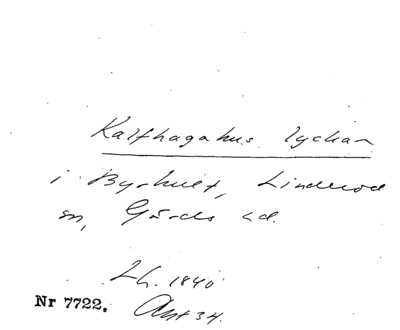 Kalfhagahus lyckan
i Byrhult, Linderöd
sn, Gärds hd.
Lh. 1840
Nr 7722. Akt 34.